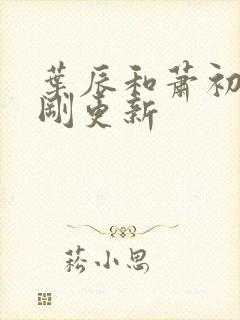 葉辰和蕭初
剛更新
菘小思